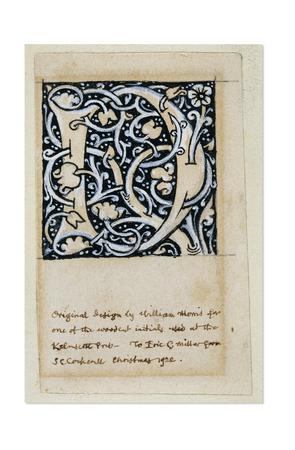 Original design by William Morris for
one of the woodcut initials used at the
Kelmscott Press - To Eric G. Millar from
S.C. Cockerell Christmas 1920.